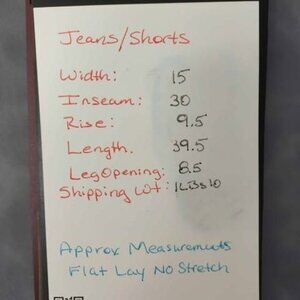 Jeans/Shorts
Width: 15
Inseam: 30
Rise: 9.5
Length. 39.5
Leg Opening: 8.5
Shipping Wt: 1LBS10
Approx Measurements
Flat Lay No Stretch